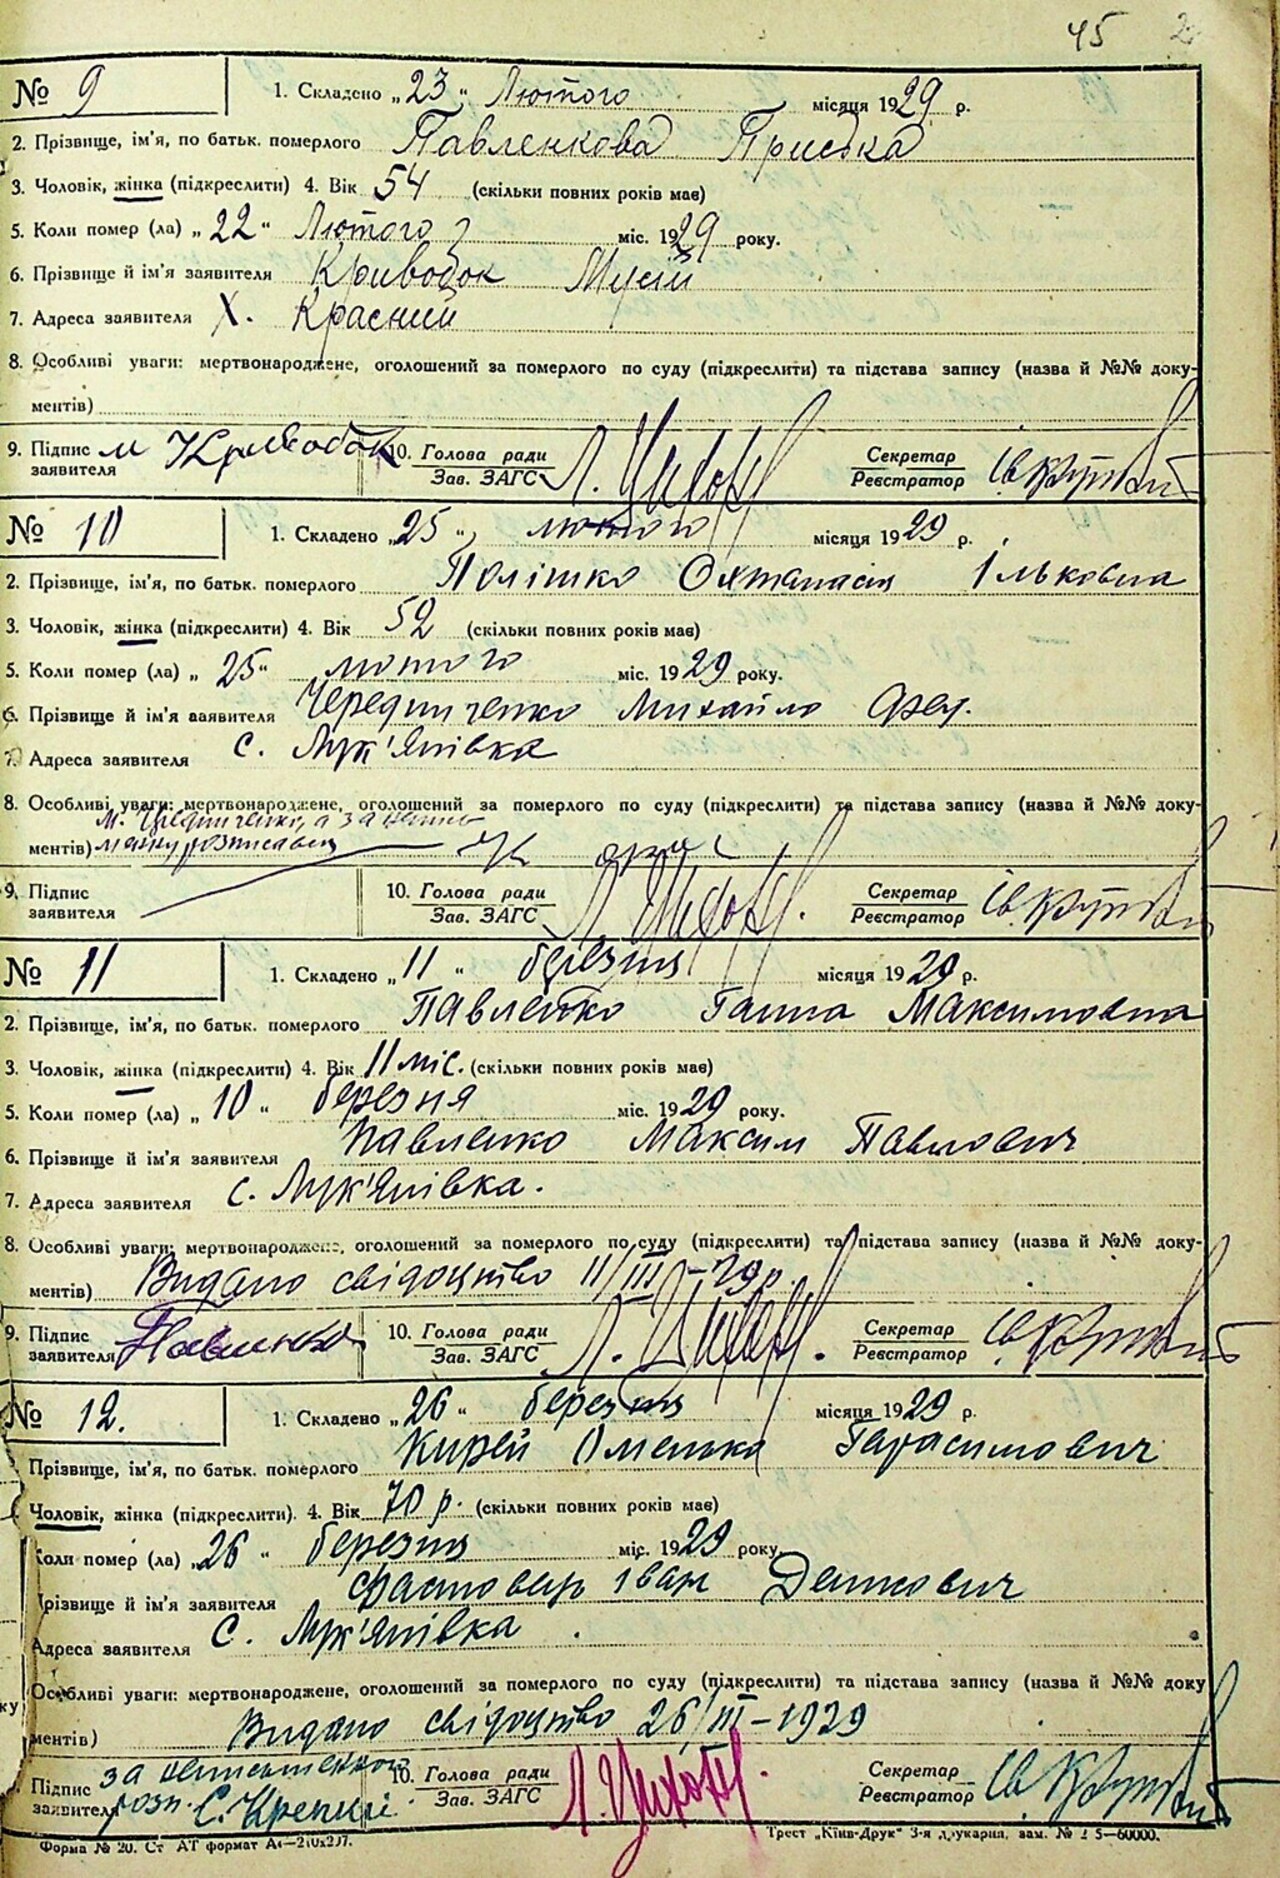 45
№ 9
1. Складено „23“ Лютого місяця 1929 р.
2. Прізвище, ім'я, по батьк. померлого Павленкова Приська
3. Чоловік, жінка (підкреслити) 4. Вік 54 (скільки повних років має)
5. Коли помер (ла) „22“ Лютого міс. 1929 року.
6. Прізвище й ім'я заявителя Кривобок Мусій
7. Адреса заявителя Х. Красний
8. Особливі уваги: мертвонароджене, оголошений за померлого по суду (підкреслити) та підстава запису (назва й №№ доку-
ментів)
9. Підпис заявителя М Кривобок 10. Голова ради Зав. ЗАГС Секретар Реєстратор
№ 10
1. Складено „25“ лютого місяця 1929 р.
2. Прізвище, ім'я, по батьк. померлого Полішко Ільковна
3. Чоловік, жінка (підкреслити) 4. Вік 52 (скільки повних років має)
5. Коли помер (ла) „25“ лютого міс. 1929 року.
6. Прізвище й ім'я заявителя Чередниченко Михайло
7. Адреса заявителя с. Лук'янівка
8. Особливі уваги: мертвонароджене, оголошений за померлого по суду (підкреслити) та підстава запису (назва й №№ доку-
М. Чередниченко, а за
ментів) розписався
9. Підпис заявителя 10. Голова ради Зав. ЗАГС Секретар Реєстратор
№ 11
1. Складено „11“ березня місяця 1929 р.
2. Прізвище, ім'я, по батьк. померлого Павленко Ганна Максимовна
3. Чоловік, жінка (підкреслити) 4. Вік 11 міс. (скільки повних років має)
5. Коли помер (ла) „10“ березня міс. 1929 року.
6. Прізвище й ім'я заявителя Павленко Максим Павлович
7. Адреса заявителя с. Лук'янівка.
8. Особливі уваги: мертвонароджене, оголошений за померлого по суду (підкреслити) та підстава запису (назва й №№ доку-
ментів) Видано свідоцтво 11/III-29р.
9. Підпис заявителя Павленко 10. Голова ради Зав. ЗАГС Секретар Реєстратор
№ 12.
1. Складено „26“ березня місяця 1929 р.
Прізвище, ім'я, по батьк. померлого Кирей Омелько Гарасимович
Чоловік, жінка (підкреслити). 4. Вік 70 р. (скільки повних років має)
Коли помер (ла) „26“ березня міс. 1929 року
Прізвище й ім'я заявителя Іван
Адреса заявителя с. Лук'янівка
Особливі уваги: мертвонароджене, оголошений за померлого по суду (підкреслити) та підстава запису (назва й №№ доку
ментів) Видано свідоцтво 26/III-1929
Підпис заявителя за розп. С. 10. Голова ради Зав. ЗАГС Секретар Реєстратор
Форма № 20. Ст АТ формат Трест „Київ-Друк“ 3-я друкарня, зам. № 5—60000.